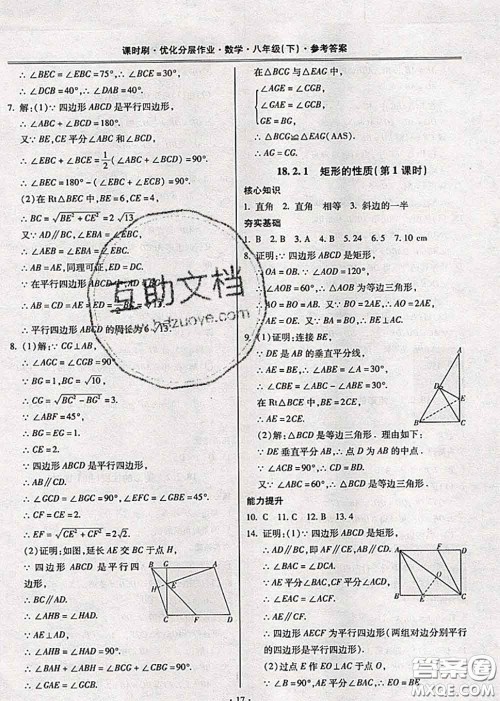 课时刷·优化分层作业·数学·八年级(下)·参考答案
∴ ∠BEC = ∠EBC = 75°, ∴ ∠BCE = 30°.
∴ ∠DCB = 40°, ∴ ∠DAB = 40°.
7. 解:(1)∵ 四边形 ABCD 是平行四边形,
∴ ∠ABC + ∠BCD = 180°.
又∵ BE, CE 平分∠ABC 和∠BCD,
∴ ∠EBC + ∠BCE = 1/2(∠ABC + ∠BCD) = 90°.
∴ ∠BEC = 180° - (∠EBC + ∠BCE) = 90°.
(2)在 Rt△BCE 中, BE = 6, CE = 4,
∴ BC = √(BE² + CE²) = 2√13.
又∵ AD∥BC, ∴ ∠EBC = ∠AEB,
∴ ∠AEB = ∠EBA = ∠EBC.
∴ AB = AE, 同理可证, ED = DC.
∵ 在平行四边形 ABCD 中, AB = CD,
∴ AB = CD = AE = ED =
∴ 平行四边形 ABCD 的周长为 6√13.
8. (1)解:∵ CG⊥AB,
∴ ∠AGC = ∠CGB = 90°.
∵ BG = 1, BC = √10,
∴ CG = √(BC² - BG²) = 3.
∵ ∠ABF = 45°,
∴ BG = EG = 1.
∴ EC = 2.
∵ 四边形 ABCD 是平行四边形,
∴ ∠GCD = ∠BGC = 90°, ∠EFG = ∠GBE = 45°.
∴ CF = CE = 2.
∴ EF = √(CE² + CF²) = 2√2.
(2)证明:如图,延长 AE 交 BC 于点 H,
∵ 四边形 ABCD 是平行四边形,
∴ BC∥AD.
∴ ∠AHB = ∠HAD.
∵ AE⊥AD,
∴ ∠AHB = ∠HAD = 90°.
∴ ∠BAH + ∠ABH = ∠BCG + ∠CBG = 90°.
∴ ∠GAE = ∠GCB.
在△BCG 与△EAG 中,
∠AGE = ∠CGB,
∠GAE = ∠GCB,
GE = BG,
∴ △BCG≌△EAG(AAS).
∴ AE = BC.
18.2.1 矩形的性质(第1课时)
核心知识
1. 直角 直角 相等 3. 斜边的一半
夯实基础
1. B 2. B 3. B 4. B 5. 24 6. 5 7. 10 cm
8. 证明:∵ 四边形 ABCD 是矩形,
∴ OA = OB. ∵ ∠AOB = 60°,
∴ △AOB 为等边三角形.
∵ BE = OE, ∴ AE⊥BO.
9. (1)证明:连接 BE,
∵ DE 是 AB 的垂直平分线,
∴ AE = BE.
∴ ∠ABE = ∠A = 30°.
∴ ∠CBE = ∠ABC - ∠ABE = 30°.
在 Rt△BCE 中, BE = 2CE,
∴ AE = 2CE.
(2)解:△BCD 是等边三角形.
∵ DE 垂直平分 AB, ∴ D 为 AB 中点.
∵ ∠ACB = 90°, ∴ CD = BD.
又∵ ∠ABC = 60°,
∴ △BCD 是等边三角形.
能力提升
10. C 11. C 12. B 13. 4
14. 证明:(1)∵ 四边形 ABCD 是矩形,
∴ AD∥BC, 即 AF∥CE, AB∥CD.
∴ ∠BAC = ∠ACD.
∵ AE 平分∠BAC, CF 平分∠ACD,
∴ ∠EAC = ∠ACF.
∴ AE∥CF.
∴ 四边形 AECF 为平行四边形(两组对边分别平行的四边形为平行四边形).
(2)过点 E 作 EO⊥AC 于点 O,
∵ AE 平分∠BAC, ∴ BE = OE.
· 17 ·
互助文档
hdzuoye.com
答案圈
MXQE.COM